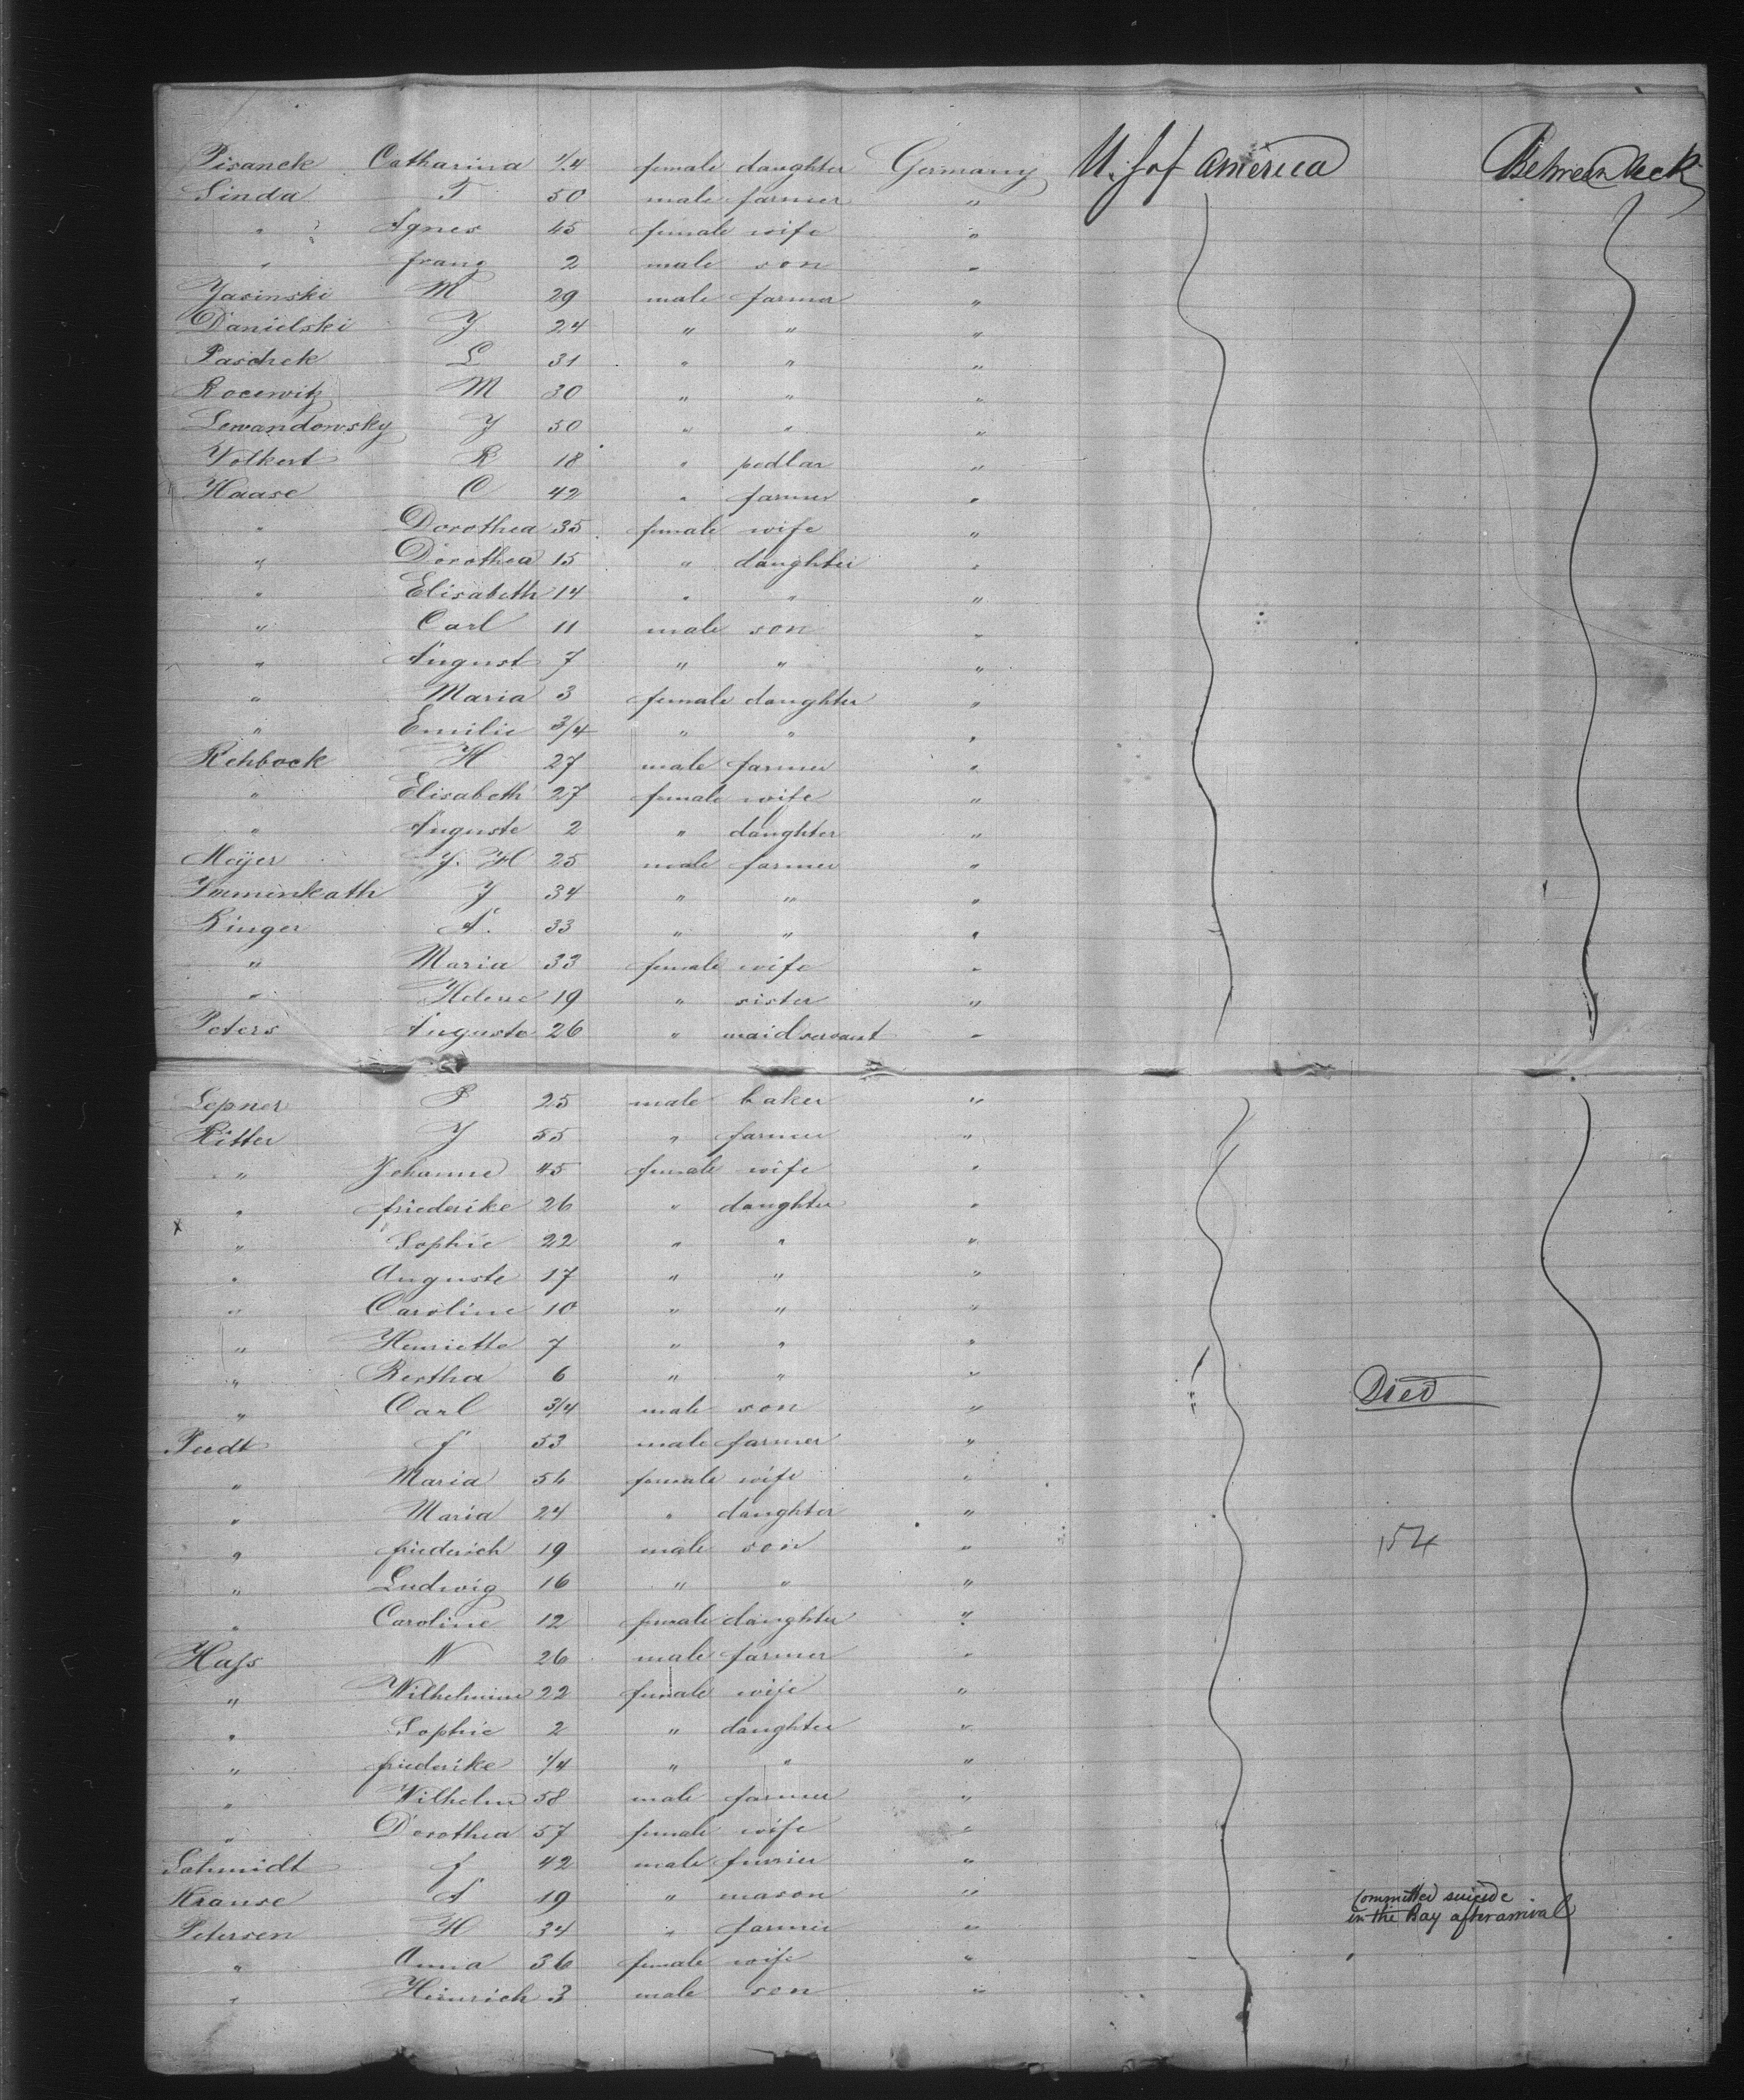 Pisanek Catharina 1/4 female daughter Germany U. S of America Between Deck
Linda F 50 male farmer "
" Agnes 45 female wife "
" franz 2 male son "
Jasinski M 29 male farmer "
Danielski J 24 " " "
Paschek L 31 " " "
Rocewitz M 30 " " "
Lewandowsky J 50 " " "
Volkert R 18 " pedlar "
Haase C 42 " farmer "
" Dorothea 35 female wife "
" Dorothea 15 " daughter "
" Elisabeth 14 " " "
" Carl 11 male son "
" August 7 " " "
" Maria 3 female daughter "
" Emilie 3/4 " " "
Rehbock H 27 male farmer "
" Elisabeth 27 female wife "
" Auguste 2 " daughter "
Meÿer J. H 25 male farmer "
J 34 " " "
Ringer A. 33 " " "
" Maria 33 female wife "
" Helene 19 " sister "
Peters Auguste 26 " maidservant "
Lepner P 25 male baker "
Ritter J 55 " farmer "
" Johanne 45 female wife "
" friederike 26 " daughter "
x " Sophie 22 " " "
" Auguste 17 " " "
" Caroline 10 " " "
" Henriette 7 " " "
" Bertha 6 " " "
" Carl 3/4 male son " Died
f 53 male farmer "
" Maria 54 female wife "
" Maria 24 " daughter "
" friederich 19 male son " 154
" Ludwig 16 " " "
" Caroline 12 female daughter "
Hafs N 26 male farmer "
" Wilhelmine 22 female wife "
" Sophie 2 " daughter "
" friederike 1/4 " " "
" Wilhelm 58 male farmer "
" Dorothea 57 female wife "
Schmidt f 42 male furrier "
Krause A 19 " mason " Committed suicide
in the Bay after arrival
Petersen H 34 " farmer "
" Anna 36 female wife "
" Heinrich 3 male son "